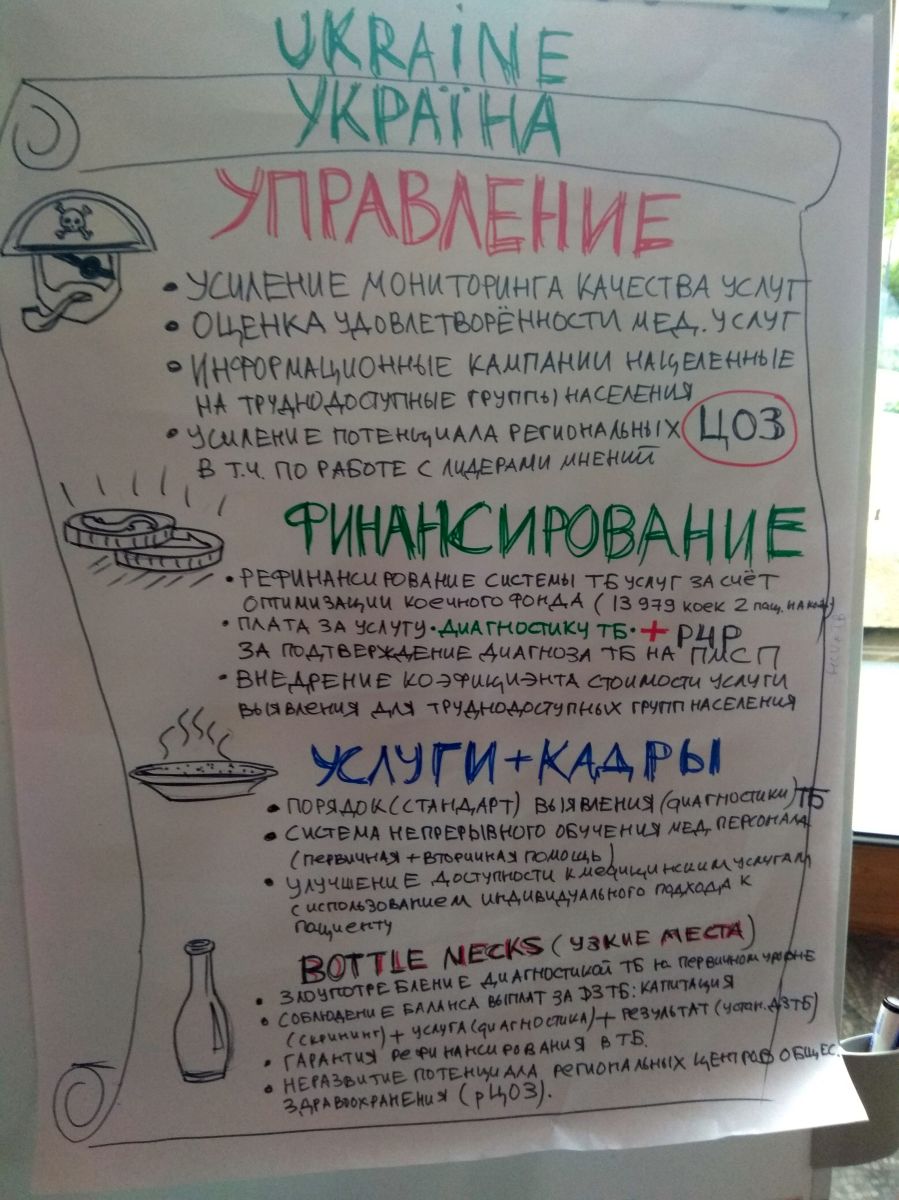 UKRAINE
УКРАЇНА
УПРАВЛЕНИЕ
• УСИЛЕНИЕ МОНИТОРИНГА КАЧЕСТВА УСЛУГ
• ОЦЕНКА УДОВЛЕТВОРЁННОСТИ МЕД. УСЛУГ
• ИНФОРМАЦИОННЫЕ КАМПАНИИ НАЦЕЛЕННЫЕ
НА ТРУДНОДОСТУПНЫЕ ГРУППЫ НАСЕЛЕНИЯ
• УСИЛЕНИЕ ПОТЕНЦИАЛА РЕГИОНАЛЬНЫХ ЦОЗ
В Т.Ч. ПО РАБОТЕ С ЛИДЕРАМИ МНЕНИЙ
ФИНАНСИРОВАНИЕ
• РЕФИНАНСИРОВАНИЕ СИСТЕМЫ ТБ УСЛУГ ЗА СЧЁТ
ОПТИМИЗАЦИИ КОЕЧНОГО ФОНДА (13 979 КОЕК 2 ПАЦ. НА
• ПЛАТА ЗА УСЛУГУ • ДИАГНОСТИКУ ТБ • + P4P
ЗА ПОДТВЕРЖДЕНИЕ ДИАГНОЗА ТБ НА ПМСП
• ВНЕДРЕНИЕ КОЭФИЦИЭНТА СТОИМОСТИ УСЛУГИ
ВЫЯВЛЕНИЯ ДЛЯ ТРУДНОДОСТУПНЫХ ГРУПП НАСЕЛЕНИЯ
УСЛУГИ + КАДРЫ
• ПОРЯДОК (СТАНДАРТ) ВЫЯВЛЕНИЯ (ДИАГНОСТИКИ) ТБ
• СИСТЕМА НЕПРЕРЫВНОГО ОБУЧЕНИЯ МЕД. ПЕРСОНАЛА
(ПЕРВИЧНАЯ + ВТОРИЧНАЯ ПОМОЩЬ)
• УЛУЧШЕНИЕ ДОСТУПНОСТИ К МЕДИЦИНСКИМ УСЛУГАМ
С ИСПОЛЬЗОВАНИЕМ ИНДИВИДУАЛЬНОГО ПОДХОДА К
ПАЦИЕНТУ
BOTTLE NECKS (УЗКИЕ МЕСТА)
• ЗЛОУПОТРЕБЛЕНИЕ ДИАГНОСТИКОЙ ТБ НА ПЕРВИЧНОМ УРОВНЕ
• СОБЛЮДЕНИЕ БАЛАНСА ВЫПЛАТ ЗА DЗ ТБ: КАПИТАЦИЯ
(СКРИНИНГ) + УСЛУГА (ДИАГНОСТИКА) + РЕЗУЛЬТАТ (УСТАН. ДЗ ТБ)
• ГАРАНТИЯ РЕФИНАНСИРОВАНИЯ В ТБ.
• НЕРАЗВИТИЕ ПОТЕНЦИАЛА РЕГИОНАЛЬНЫХ ЦЕНТРОВ ОБЩЕС.
ЗДРАВООХРАНЕНИЯ (рЦОЗ).